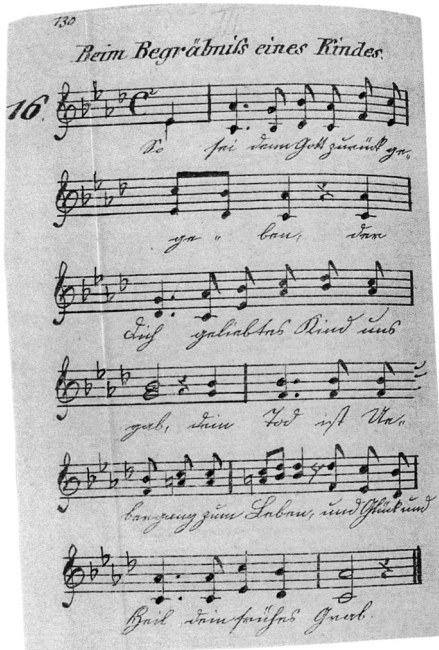 130
Beim Begräbniß eines Kindes.
16.
So sei denn Gott zurück ge,
ge " ben, der
dich geliebtes Kind uns
gab, dein Tod ist Ue,,
bergang zum Leben, und Glück und
Heil dein frühes Grab.